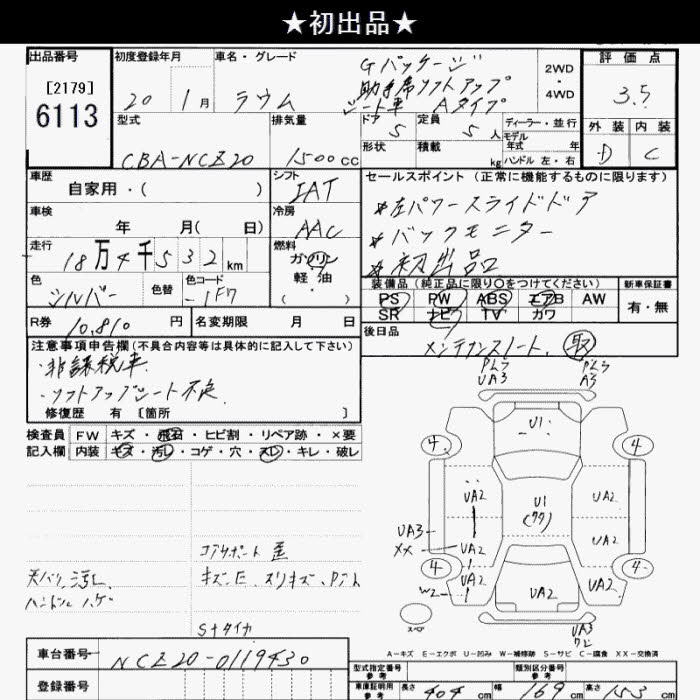 ★初出品★
出品番号
[2179]
6113
初度登録年月
20 1月
車名・グレード
ラウム
Gパッケージ
助手席リフトアップ
シート車 Aタイプ
2WD
・
4WD
評価点
3.5
外装 内装
D C
型式
CBA-NCZ20
排気量
1500cc
ドア
5
定員
5人
ディーラー・並行
モデル
年式 年
形状
積載 kg
ハンドル 左・右
車歴
自家用・( )
シフト
IAT
車検
年 月( 日)
冷房
AAC
走行
18万4千532km
燃料
ガソリン
軽油
・
( )
色
シルバー
色替
色コード
-1F7
R券 10,810円
名変期限 月 日
セールスポイント(正常に機能するものに限ります)
*左パワースライドドア
*バックモニター
*初出品
装備品(純正品に限り○をつけてください)
PS PW ABS エアB AW
SR ナビ TV カワ
新車保証書
有・無
後日品
メンテナンスノート、
注意事項申告欄(不具合内容等は具体的に記入して下さい)
・非課税車
・リフトアップシート不良
修復歴 有 [箇所 ]
検査員
記入欄
FW キズ・飛石・ヒビ割・リペア跡・×要
内装 キズ・汚レ・コゲ・穴・スレ・キレ・破レ
Pムラ
UA3
Pムラ
A3
U1
4 4
UA2 U1 UA2
UA3
XX
UA2 UA2
4 4
W2 UA2 UA2 UA2
UA3
スペア
コアサポート 歪
天バリ汚レ、
ハンドルハゲ
キズ・E、スリキズ、Pアト
Sナタイカ
A−キズ E−エクボ U−凹み W−補修跡 S−サビ C−腐食 XX−交換済
車台番号 NCZ20-0119430
登録番号
型式指定番号
参考
類別区分番号
参考
車庫証明用
参考
長さ 404cm
幅 169cm
高さ 153cm